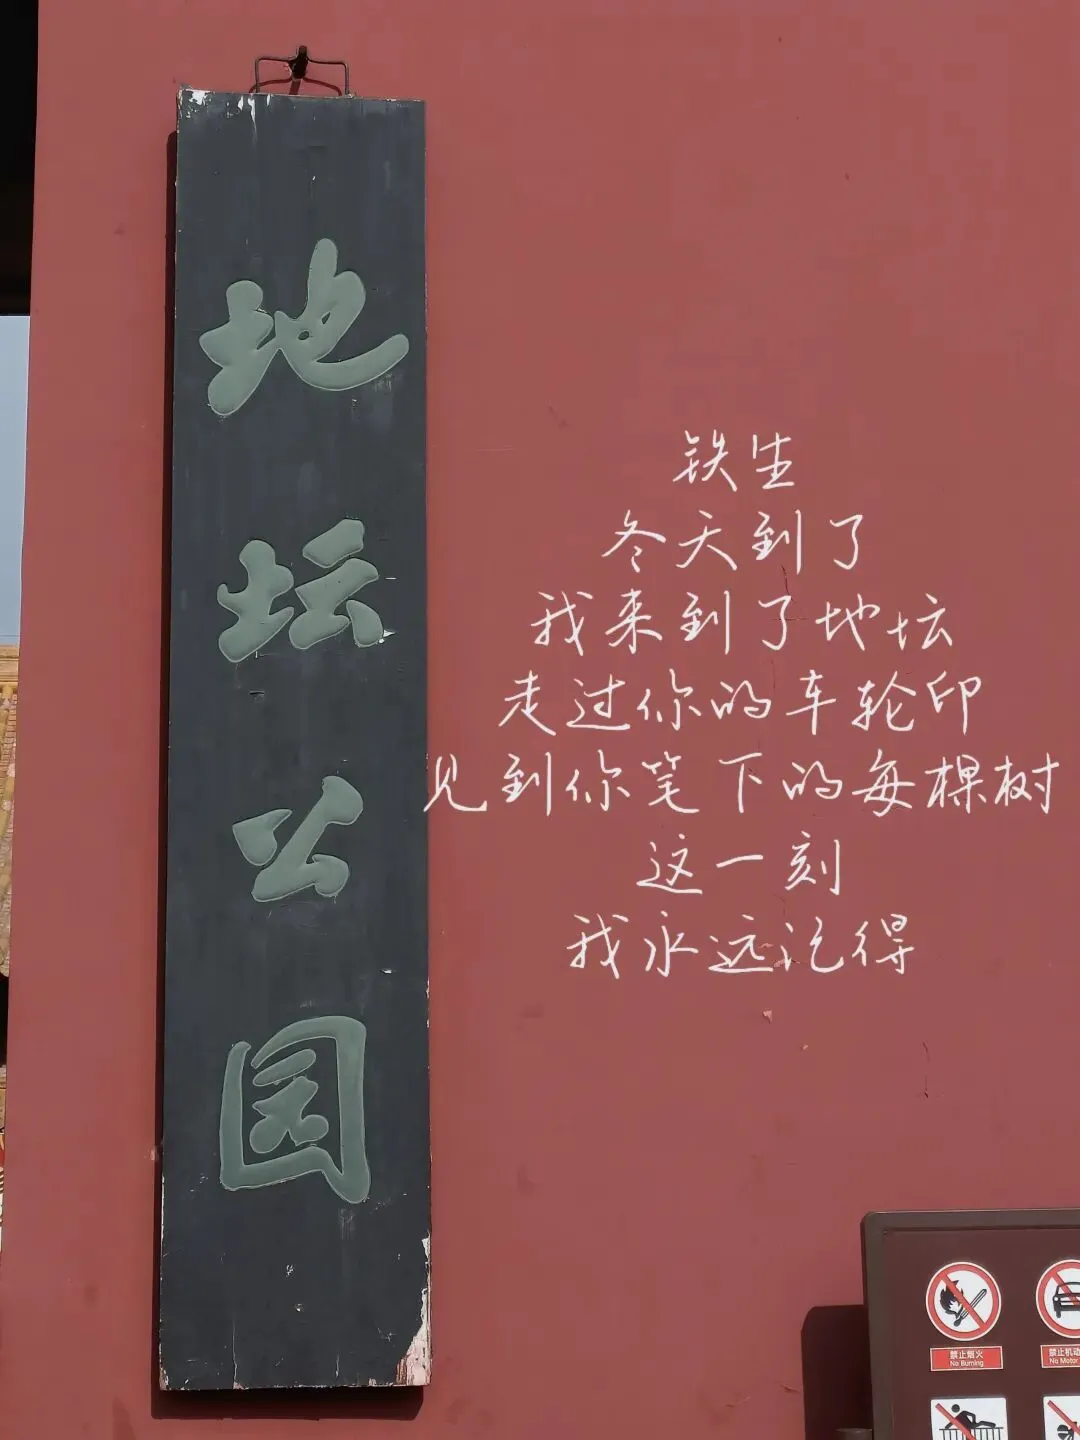 地坛公园
铁生
冬天到了
我来到了地坛
走过你的车轮印
见到你笔下的每棵树
这一刻
我永远记得
禁止烟火
No Burning
禁止机动
No Motor